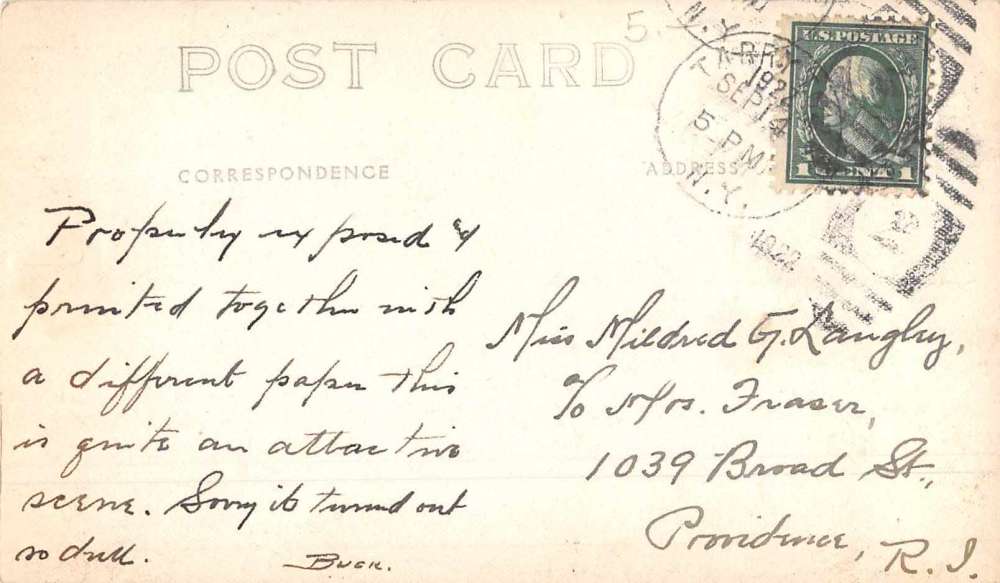 POST CARD
5.
N.Y.
TARRY
1922
SEP 14
5 PM
N.Y.
1922
U.S. POSTAGE
1 CENT 1
CORRESPONDENCE
ADDRESS
Properly exposed &
printed together with
a different paper this
is quite an attractive
scene. Sorry its turned out
so dull.
Buck.
Miss Mildred G. Langley,
c/o Mrs. Fraser,
1039 Broad St.,
Providence, R. I.